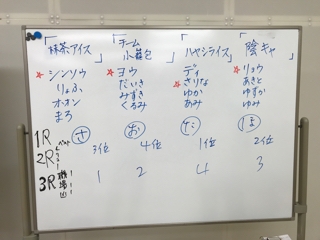 「抹茶アイス」
「チーム小籠包」
「ハヤシライス」
「陰キャ」
☆シンソウ
りょふ
オオン
まろ
☆ヨウ
だいき
みずき
くるみ
ディ
☆さりな
ゆか
あみ
☆リョウ
あきと
ゆずか
ゆみ
さ
お
た
ほ
1R
3位 4位 1位 2位
2R
3R 1 2 4 3